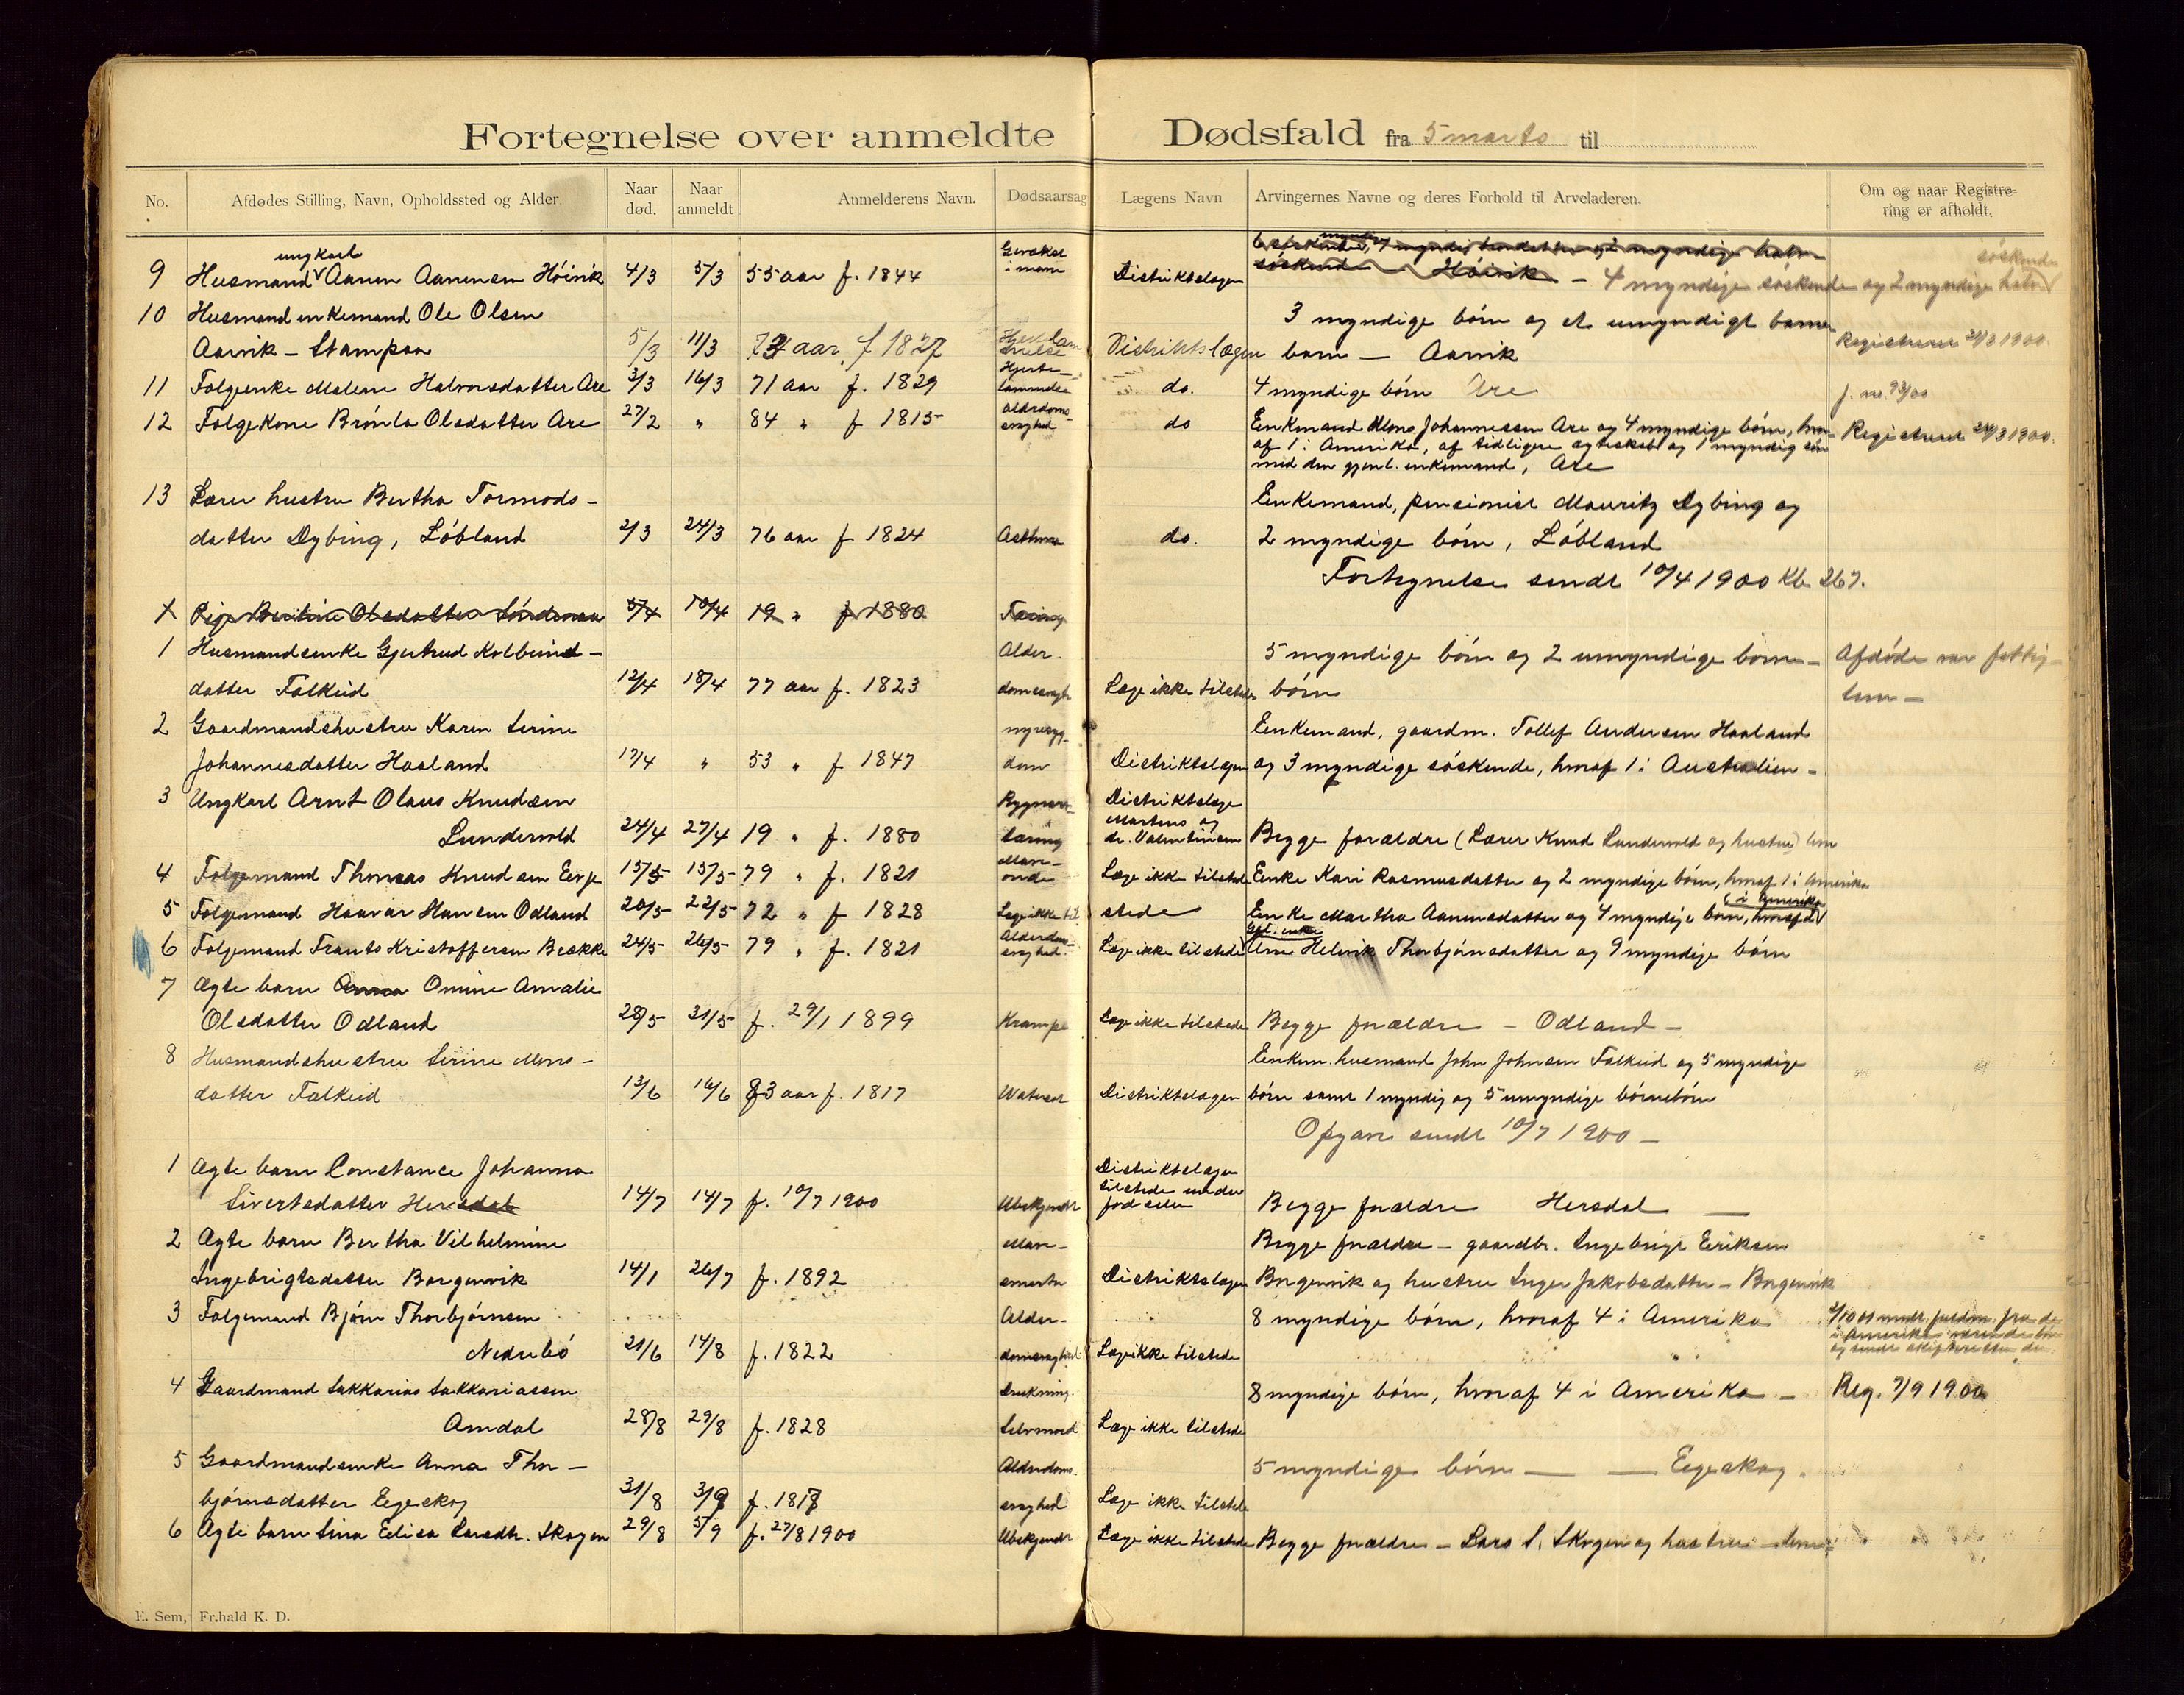 Fortegnelse over anmeldte Dødsfald fra 5 marts til
No.
Afdødes Stilling, Navn, Opholdssted og Alder.
Naar død.
Naar anmeldt
Anmelderens Navn.
Dødsaarsag
Lægens Navn
Arvingernes Navne og deres Forhold til Arveladeren.
Om og naar Registrering er afholdt.
ungkarl
9 Husmand Aanen Aanensen Höivik 4/3 5/3 55 aar f. 1844 i maven Distriktslægen Höivik – 4 myndige söskende og 2 myndige halv söskende
10 Husmand enkemand Ole Olsen 3 myndige börn og et umyndigt barne
Aarvik – Stampaa 5/3 11/3 aar f 1827 Distriktslægen barn – Aarvik Registreret 24/3 1900.
11 Folgeenke Malene Halvorsdatter Are 3/3 16/3 71 aar f. 1829 Hjerte- lammelse do. 4 myndige börn Are j. no. 93/00
12 Folgekone Brönla Olsdatter Are 27/2 " 84 " f 1815 Alderdoms- svaghed do Enkemand Mons Johannessen Are og 4 myndige börn, hvor-
af 1 i Amerika, af tidligere ægteskab og 1 myndig sön Registreret 24/3 1900.
med den gjenl. enkemand, Are
13 Lærer hustru Bertha Tormods- Enkemand, pensionist Mauritz Dybing og
datter Dybing, Löbland 2/3 24/3 76 aar f 1824 Asthma do. 2 myndige börn, Löbland
Fortegnelse sendt 10/4 1900 Kb 267.
Pige Olsdatter 5/4 10/4 19 " f 1880 Tæring
1 Husmandsenke Gjertrud Kolbeins- Alder- 5 myndige börn og 2 umyndige börne- Afdöde var fattig-
datter Falkeid 12/4 18/4 77 aar f. 1823 domssvagh Læge ikke tilstede börn lem –
2 Gaardmandshustru Karen Serine nyresyg- Enkemand, gaardm. Tollef Andersen Haaland
Johannesdatter Haaland 17/4 " 53 " f 1847 dom Distriktslægen og 3 myndige söskende, hvoraf 1 i Australien –
3 Ungkarl Arnt Olaus Knudsen Distriktslæge
Martens og
Lundevold 24/4 27/4 19 " f. 1880 tæring dr. Valentinsen Begge forældre (Lærer Knud Lundevold og hustru)
4 Folgemand Thomas Knudsen Eeg 15/5 15/5 79 " f. 1821 Mave- onde Læge ikke tilstede Enke Kari Rasmusdatter og 2 myndige börn, hvoraf 1 i Amerika
5 Folgemand Haavar Hansen Odland 20/5 22/5 72 " f 1828 Læge ikke til stede Enke Martha Aanensdatter og 4 myndige börn, hvoraf i Amerika
6 Folgemand Frants Kristoffersen Bække 24/5 26/5 79 " f. 1821 Alderdoms- svaghed. Læge ikke tilstede Gjl. enke Helvik Thorbjörnsdatter og 9 myndige börn
7 Ægte barn Anna Omine Amalie
Olsdatter Odland 28/5 31/5 f. 29/1 1899 Krampe Læge ikke tilstede Begge forældre – Odland –
8 Husmandshustru Serine Mons- Enkem. husmand John Johnsen Falkeid og 5 myndige
datter Falkeid 13/6 16/6 83 aar f. 1817 Watersot Distriktslægen börn samt 1 myndig og 5 umyndige börnebörn
Opgave sendt 10/7 1900 –
1 Ægte barn Constance Johanna Distriktslægen
tilstede under
Sivertsdatter Hersdal 14/7 14/7 f. 10/7 1900 Ubekjendt födselen Begge forældre Hersdal –
2 Ægte barn Bertha Vilhelmine Mave- Begge forældre – gaardbr. Ingebrigt Eriksen
Ingebrigtsdatter Borgenvik 14/1 26/7 f. 1892 smerter Distriktslægen Borgenvik og hustru Inger Jakobsdatter – Borgenvik
3 Folgemand Bjørn Thorbjörnsen Alder- 8 myndige börn, hvoraf 4 i Amerika
Nedrebö 21/6 14/8 f. 1822 domssvaghed Læge ikke tilstede
4 Gaardmand Sakkarias Sakkariassen Drukning. 8 myndige börn, hvoraf 4 i Amerika – Reg. 7/9 1900
Amdal 28/8 29/8 f. 1828 Selvmord Læge ikke tilstede
5 Gaardmandsenke Anna Thor- Alderdoms- 5 myndige börn – – Eegeskog
björnsdatter Eegeskog 31/8 3/9 f. 1817 svaghed Læge ikke tilstede
6 Ægte barn Sina Elisa Larsdtr. Skogen 29/8 5/9 f. 27/8 1900 Ubekjendt Læge ikke tilstede Begge forældre – Lars S. Skogen og hustru
E. Sem, Fr.hald K. D.